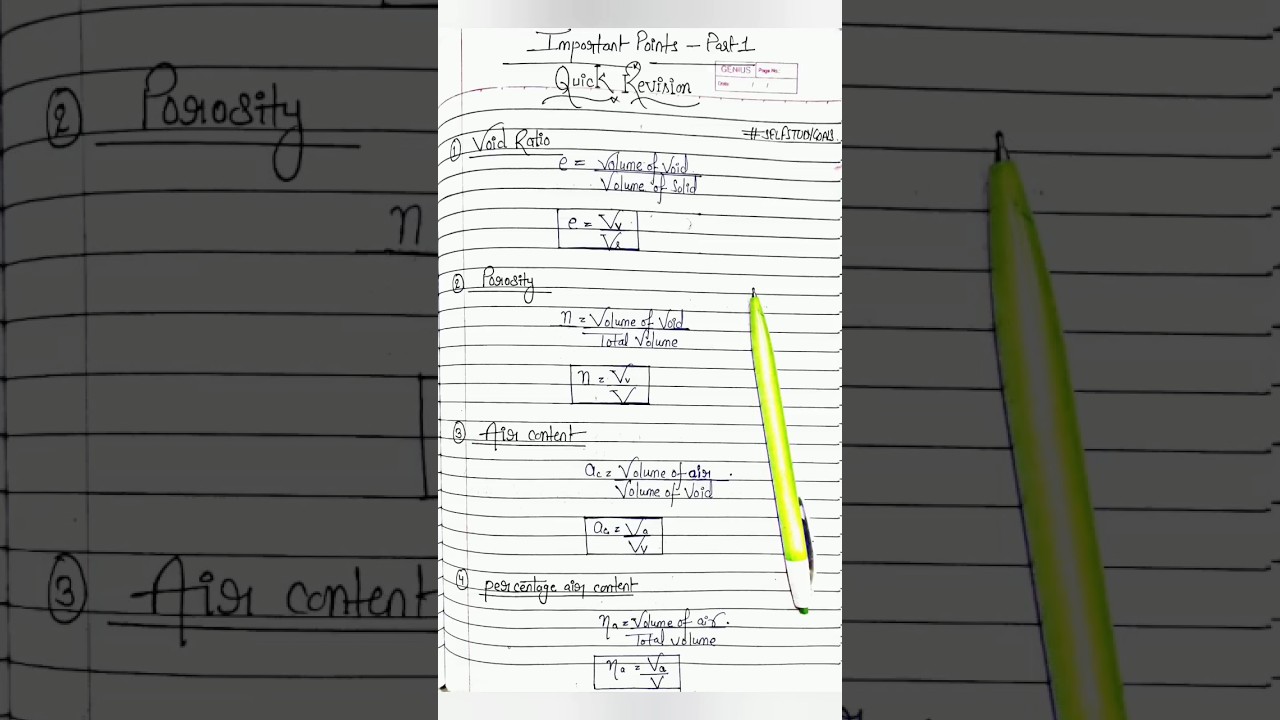 Important Points - Part 1
Quick Revision
GENIUS Page No.:
Date: / /
#SELFSTUDYGOALS
① Void Ratio
e = Volume of Void
Volume of Solid
e = Vv
Vs
② Porosity
n = Volume of Void
Total Volume
n = Vv
V
③ Air content
ac = Volume of air.
Volume of Void
ac = Va
Vv
④ percentage air content
ηa = Volume of air.
Total volume
ηa = Va
V
② Porosity
n
③ Air content